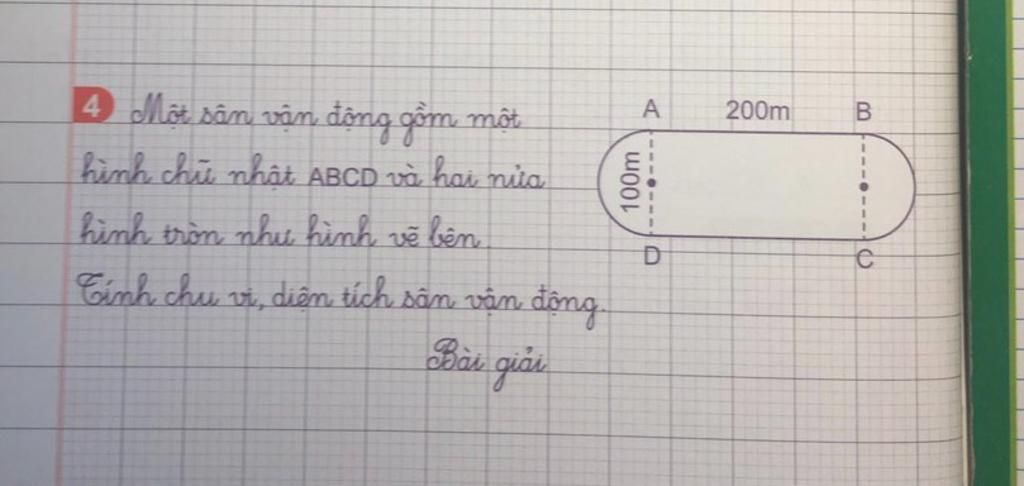 4 Một sân vận động gồm một
hình chữ nhật ABCD và hai nửa
hình tròn như hình vẽ bên.
Tính chu vi, diện tích sân vận động.
Bài giải
A 200m B
100m
D C